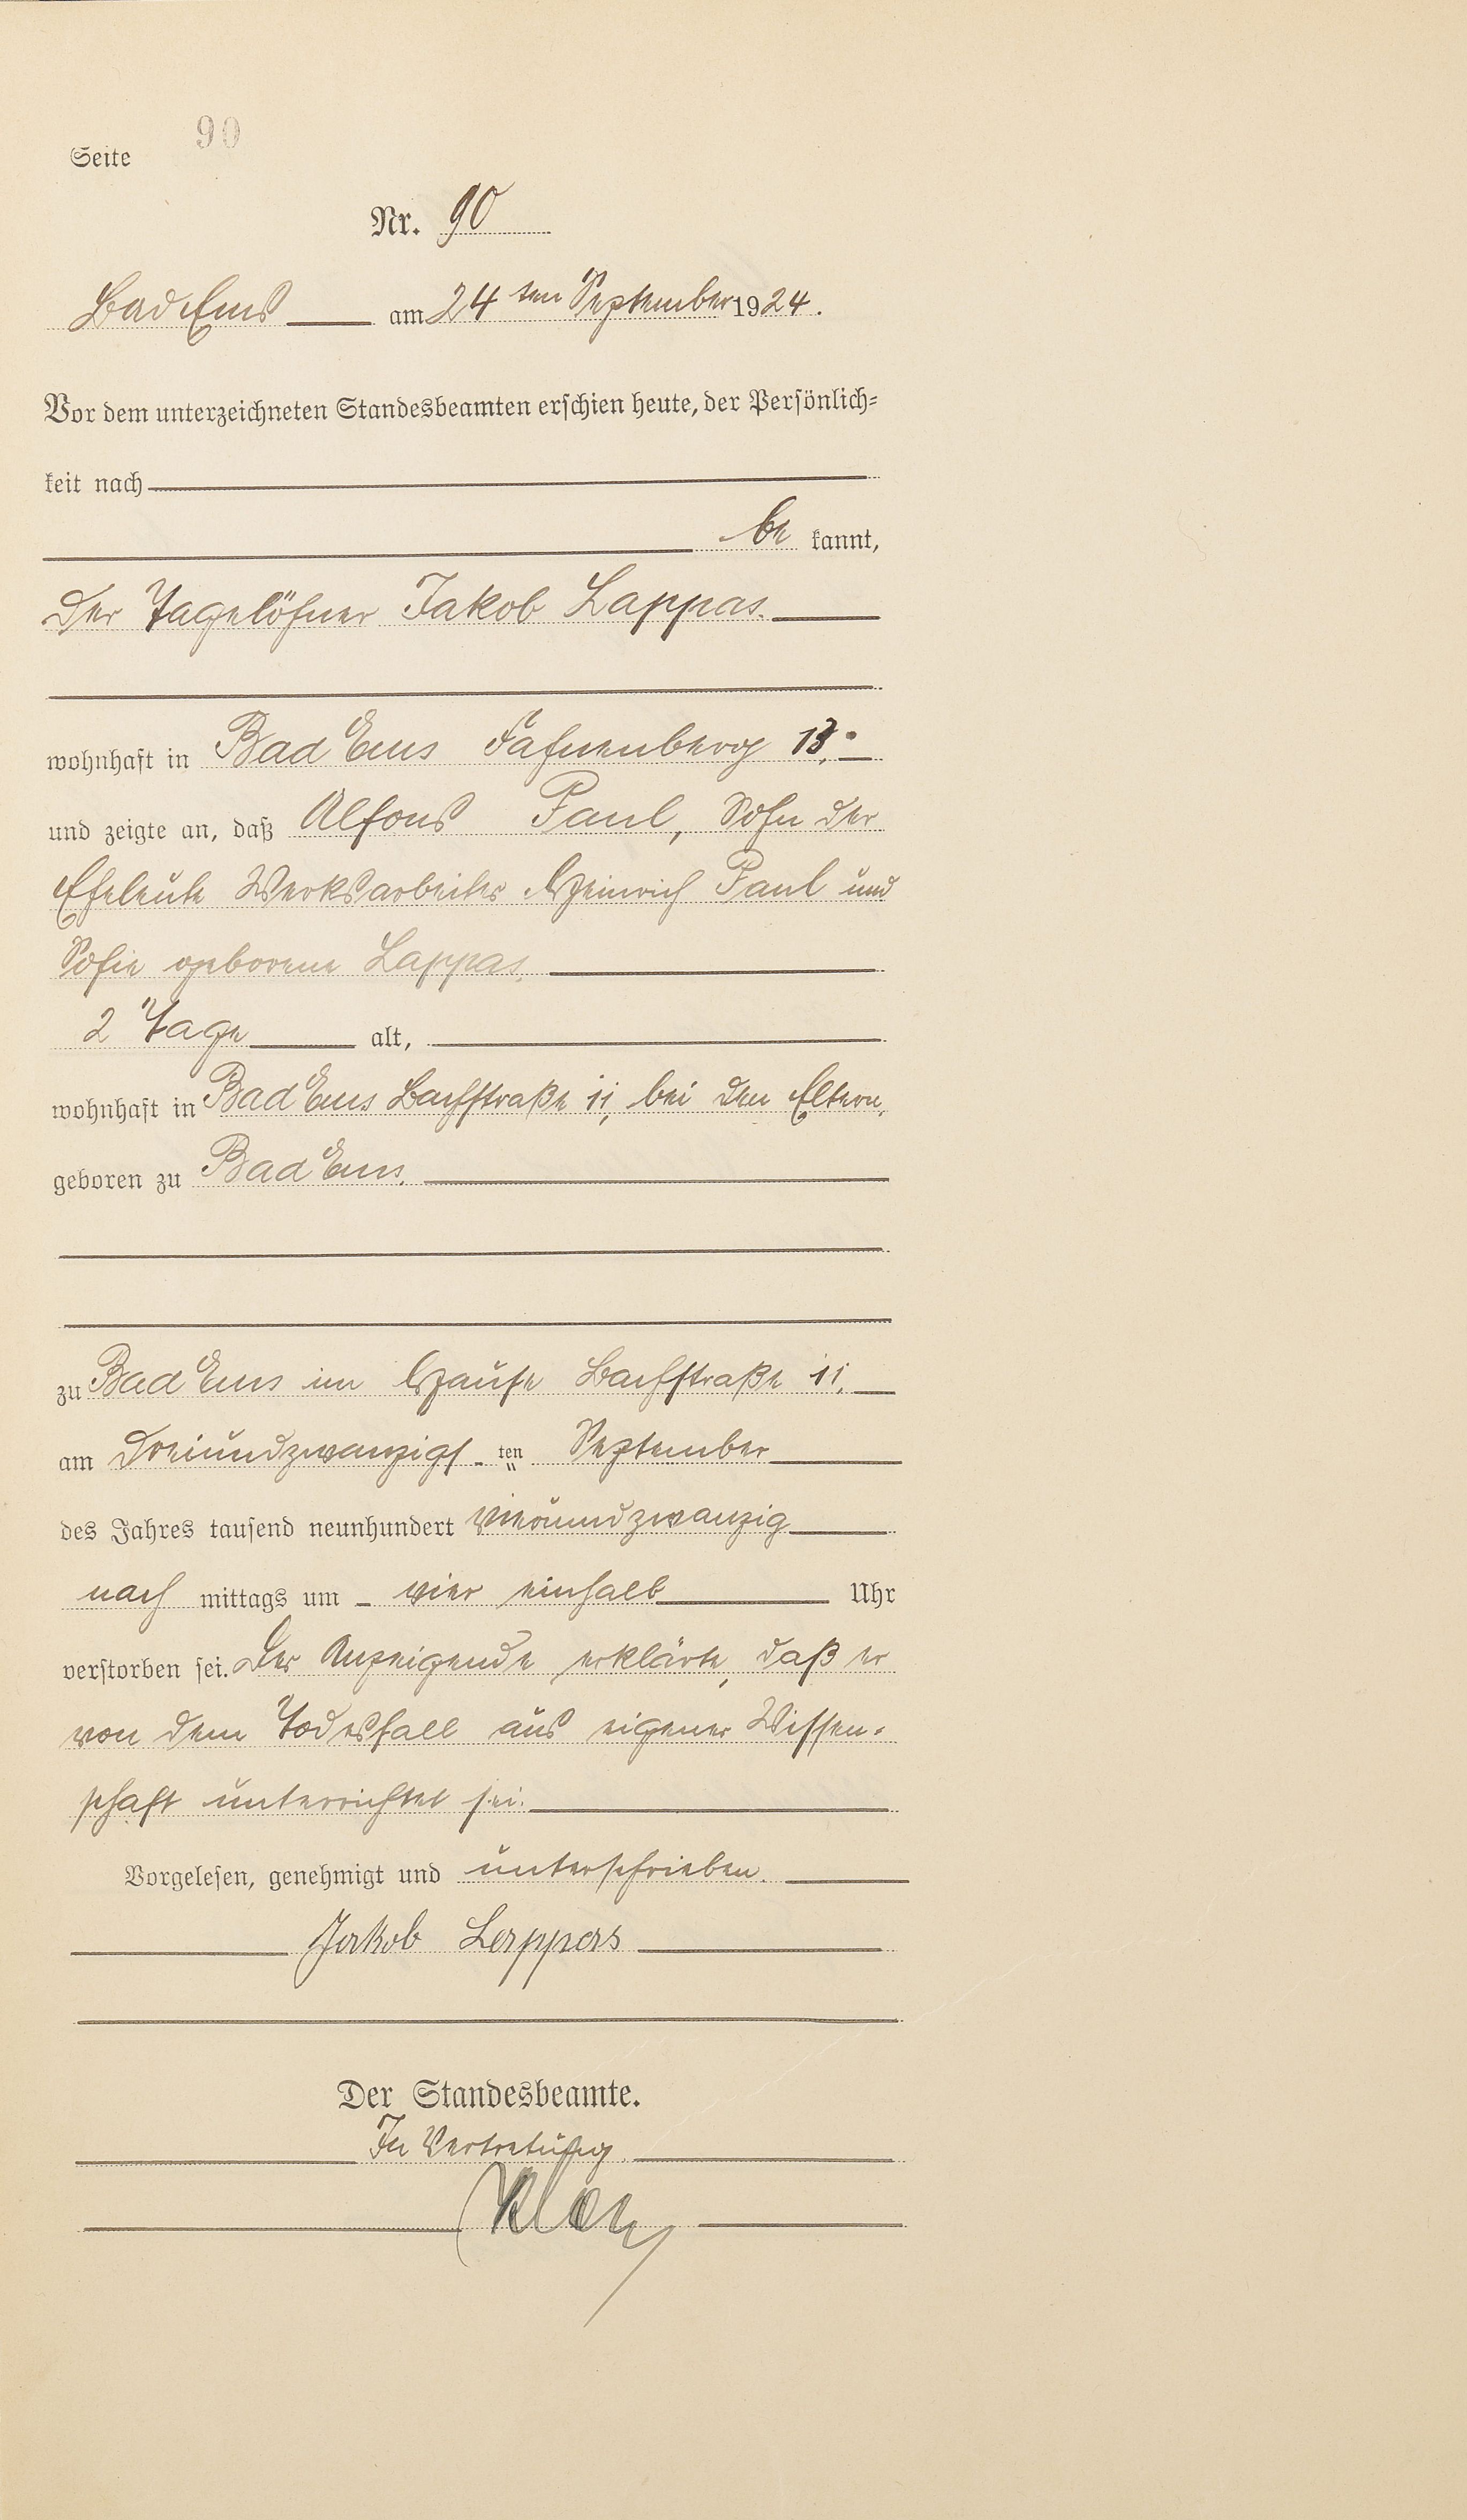 Seite 90
Nr. 90
Bad Ems am 24ten September 1924.
Vor dem unterzeichneten Standesbeamten erschien heute, der Persönlich-
keit nach
be kannt,
der Tagelöhner Jakob Lappas.
wohnhaft in Bad Ems Fahnenberg 13.
und zeigte an, daß Alfons Paul, Sohn der
Eheleute Werksarbeiter Heinrich Paul und
Sofie geborene Lappas,
2 Tage alt,
wohnhaft in Bad Ems Bachstraße 11, bei den Eltern,
geboren zu Bad Ems,
zu Bad Ems im Hause Bachstraße 11,
am dreiundzwanzigs ten September
des Jahres tausend neunhundert vierundzwanzig
nach mittags um vier einhalb Uhr
verstorben sei. Der Anzeigende erklärte, daß er
von dem Todesfall aus eigener Wissen-
schaft unterrichtet sei.
Vorgelesen, genehmigt und unterschrieben.
Jakob Lappas
Der Standesbeamte.
In Vertretung.